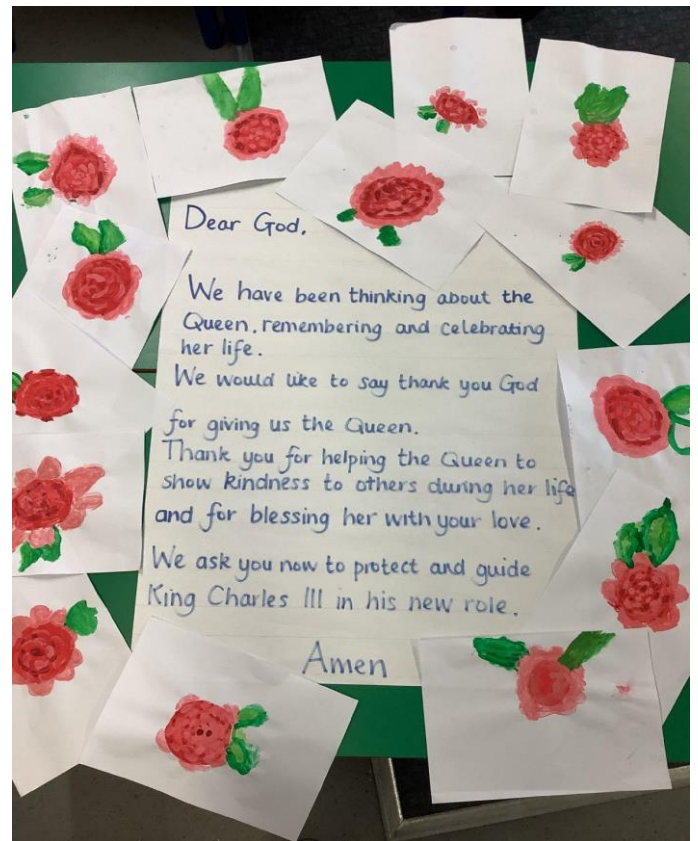 Dear God,
We have been thinking about the
Queen, remembering and celebrating
her life.
We would like to say thank you God
for giving us the Queen.
Thank you for helping the Queen to
show kindness to others during her life
and for blessing her with your love.
We ask you now to protect and guide
King Charles III in his new role.
Amen